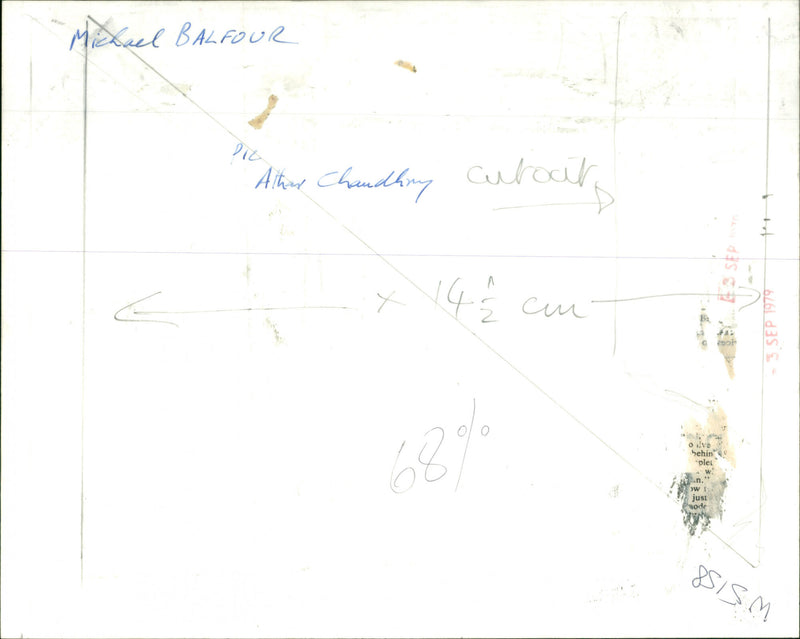 Michael BALFOUR
Pic
Athar Chaudhry cutout
x 14 1/2 cm
3 SEP
- 3 SEP 1979
68%
behin
w
just
W5158